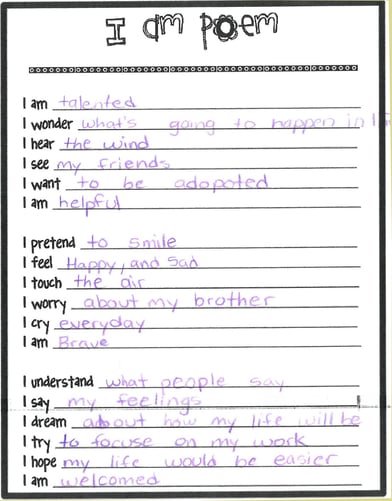 I am poem
I am talented
I wonder what's going to happen in li
I hear the wind
I see my friends
I want to be adopoted
I am helpful
I pretend to smile
I feel Happy, and Sad
I touch the air
I worry about my brother
I cry everyday
I am Brave
I understand what people say
I say my feelings
I dream about how my life will be
I try to focuse on my work
I hope my life would be easier
I am welcomed